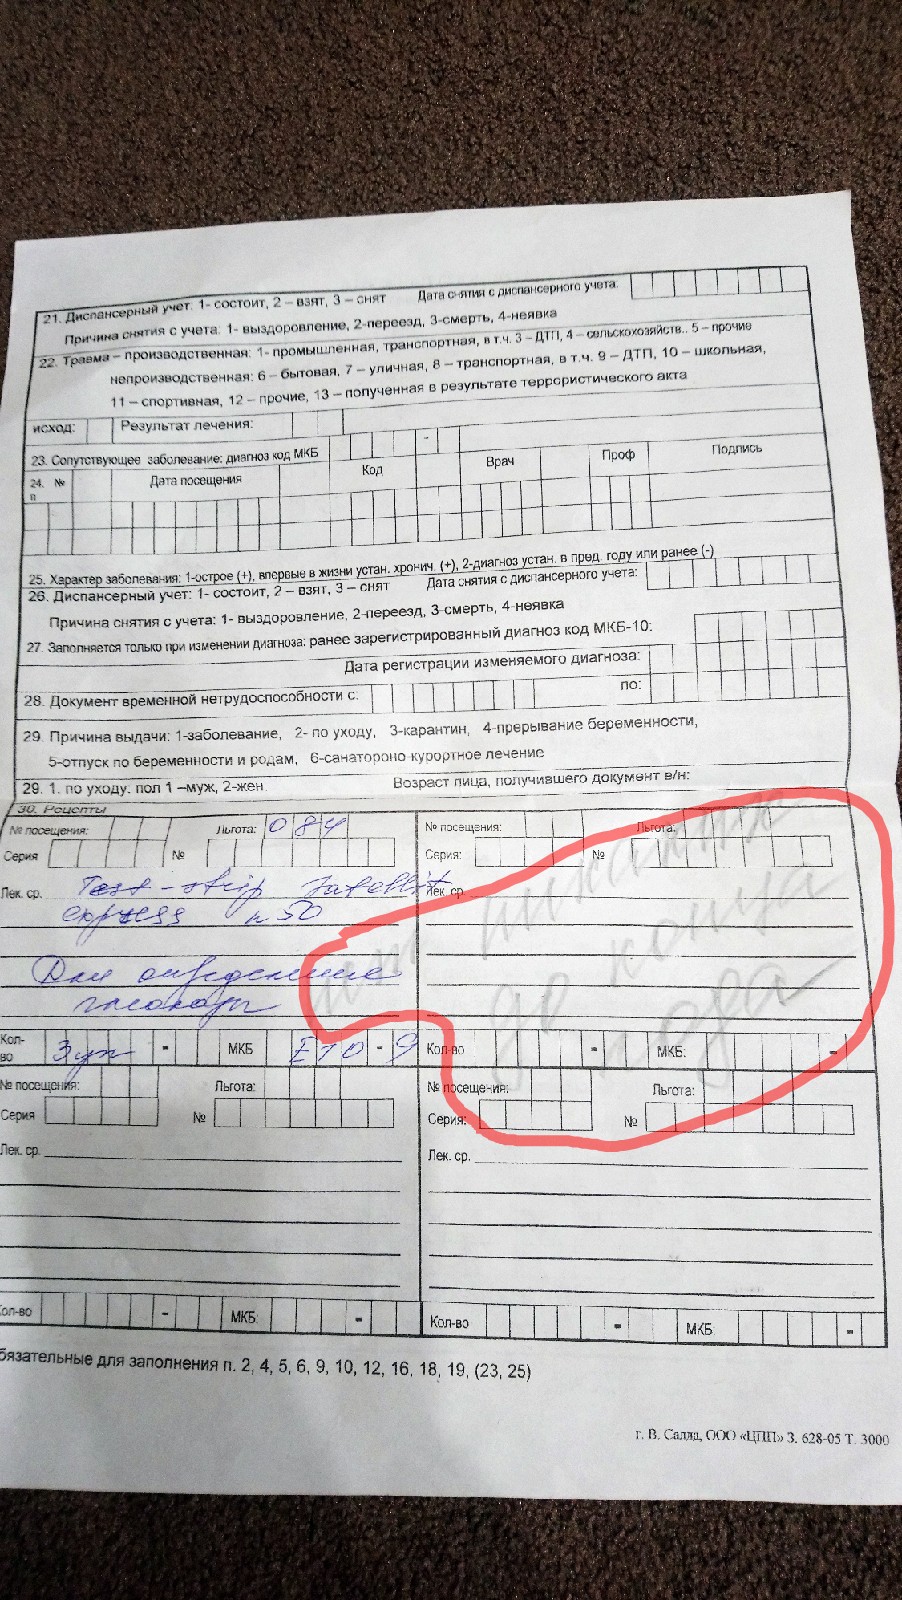 21. Диспансерный учет: 1- состоит, 2 – взят, 3 – снят Дата снятия с диспансерного учета:
Причина снятия с учета: 1- выздоровление, 2-переезд, 3-смерть, 4-неявка
22. Травма – производственная: 1- промышленная, транспортная, в т.ч. 3 - ДТП, 4 – сельскохозяйств.. 5 – прочие
непроизводственная: 6 – бытовая, 7 – уличная, 8 – транспортная, в т.ч. 9 – ДТП, 10 – школьная,
11 – спортивная, 12 – прочие, 13 – полученная в результате террористического акта
исход: Результат лечения:
23. Сопутствующее заболевание: диагноз код МКБ -
24. № п Дата посещения Код Врач Проф Подпись
25. Характер заболевания: 1-острое (+), впервые в жизни устан. хронич. (+), 2-диагноз устан. в пред. году или ранее (-)
26. Диспансерный учет: 1- состоит, 2 – взят, 3 – снят Дата снятия с диспансерного учета:
Причина снятия с учета: 1- выздоровление, 2-переезд, 3-смерть, 4-неявка
27. Заполняется только при изменении диагноза: ранее зарегистрированный диагноз код МКБ-10:
Дата регистрации изменяемого диагноза:
28. Документ временной нетрудоспособности с: по:
29. Причина выдачи: 1-заболевание, 2- по уходу, 3-карантин, 4-прерывание беременности,
5-отпуск по беременности и родам, 6-санатороно-курортное лечение
29. 1. по уходу: пол 1 –муж, 2-жен. Возраст лица, получившего документ в/н:
30. Рецепты
№ посещения: Льгота: 084
Серия №
Лек. ср. Test-strip Satellit
express n 50
Для определения
глюкозы
Кол-во 3уп - МКБ E10-9
№ посещения: Льгота:
Серия: №
Лек. ср.
нет никаких
до конца
года
Кол-во - МКБ: -
№ посещения: Льгота:
Серия №
Лек. ср.
Кол-во - МКБ: -
№ посещения: Льгота:
Серия: №
Лек. ср.
Кол-во - МКБ: -
бязательные для заполнения п. 2, 4, 5, 6, 9, 10, 12, 16, 18, 19, (23, 25)
г. В. Салда, ООО «ЦПП» З. 628-05 Т. 3000